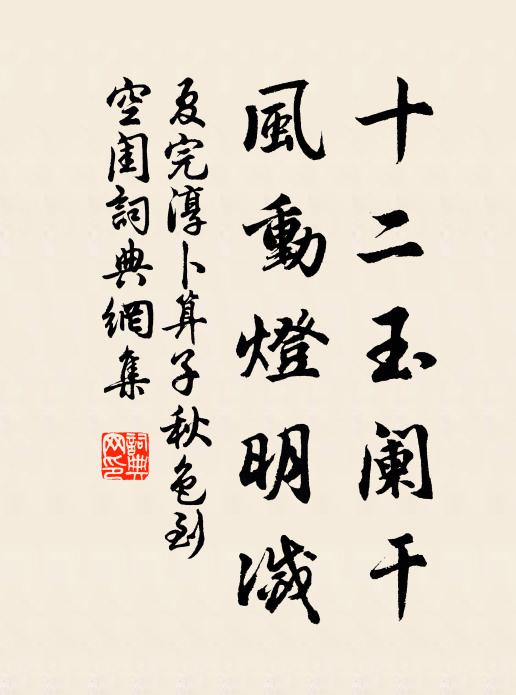 十二玉闌干
風動燈明滅
夏完淳卜算子秋色到
空閨詞典網集
詞典网印